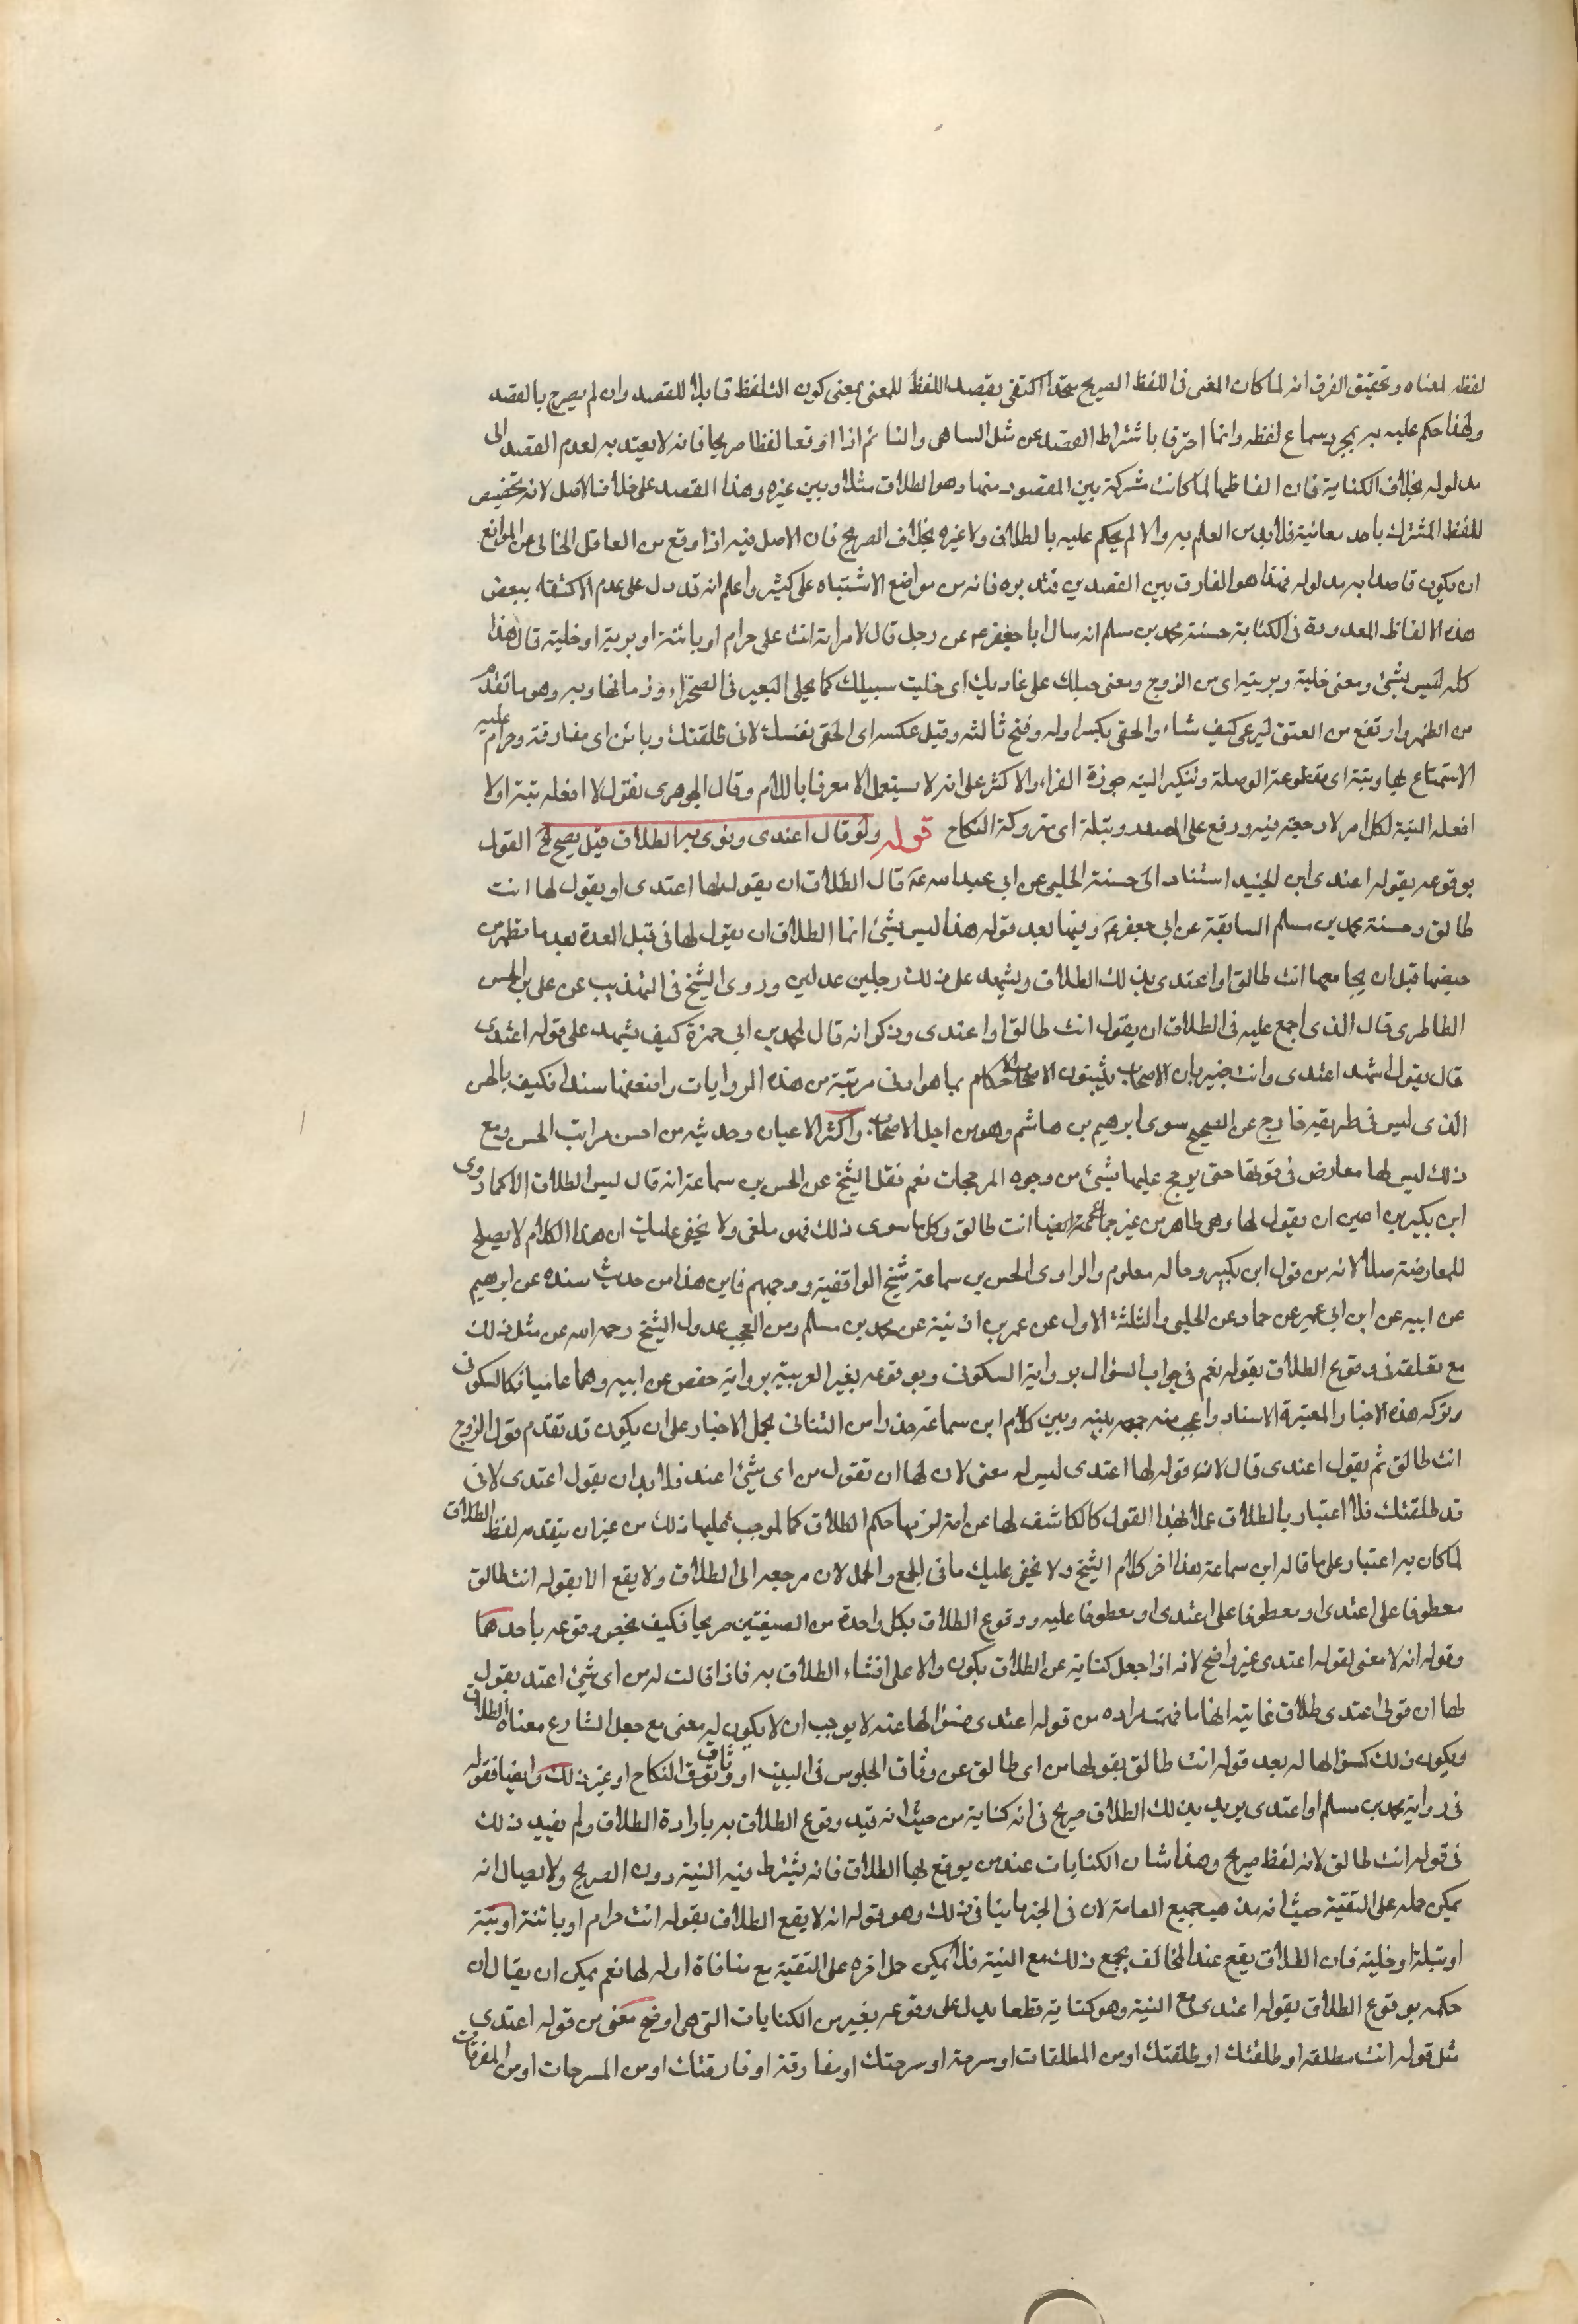 لفظه لمعناه وتحقيق الفرق انه لما كان المعنى فى اللفظ الصريح متحدا اكتفى بقصد اللفظ للمعنى بمعنى كون التلفظ قابلا للقصد وان لم يصرح بالقصد
ولهذا حكم عليه به بمجرد سماع لفظه وانما احترز باشتراط القصد عن مثل الساهى والنائم اذا اوقعا لفظا صريحا فانه لا يعتد به لعدم القصد الى
مدلوله بخلاف الكناية فان الفاظها لما كانت مشتركة بين المقصود منها وهو الطلاق مثلا وبين غيره وهذا القصد على خلاف الاصل لانه تخصيص
للفظ المشترك باحد معانيه فلا بد من العلم به والا لم يحكم عليه بالطلاق ولا غيره بخلاف الصريح فان الاصل فيه اذا وقع من العاقل الخالى عن الموانع
ان يكون قاصدا به مدلوله فهذا هو الفارق بين القصدين فتدبره فانه من مواضع الاشتباه على كثير واعلم انه قد دل على عدم الاكتفاء ببعض
هذه الالفاظ المعدودة فى الكناية حسنة محمد بن مسلم انه سال ابا جعفر ع عن رجل قال لامراته انت على حرام او بائنة او برية او خلية قال هذا
كله ليس بشئ ومعنى خلية وبرية اى من الزوج ومعنى حبلك على غاربك اى خليت سبيلك كما يخلى البعير فى الصحراء وزمامها وبر وهو ما تقدم
من الظهر وارتفع من العنق ليرعى كيف شاء والحقى بكسر اوله وفتح ثالثه وقيل عكسه اى الحقى نفسك لانى طلقتك وبائن اى مفارقة وحرام عليه
الاستمتاع بها وبتة اى مقطوعة الوصلة وتنكير البتة جوزه الفراء والاكثر على انه لا يستعمل الا معرفا باللام وقال الجوهرى نقول لا افعله بتة اولا
افعله البتة لكل امر لا رجعة فيه ورفع على المصدر وبتلة اى متروكة النكاح قوله ولو قال اعتدى ونوى به الطلاق قيل يصح الخ القول
بوقوعه بقوله اعتدى ابن الجنيد استنادا الى حسنة الحلبى عن ابى عبد الله ع قال الطلاق ان يقول لها اعتدى او يقول لها انت
طالق وحسنة محمد بن مسلم السابقة عن ابى جعفر ع وفيها بعد قوله هذا ليس بشئ انما الطلاق ان يقول لها فى قبل العدة بعد ما تطهر من
حيضها قبل ان يجامعها انت طالق او اعتدى يريد بذلك الطلاق ويشهد على ذلك رجلين عدلين وروى الشيخ فى التهذيب عن على بن الحسن
الطاطرى قال الذى اجمع عليه فى الطلاق ان يقول انت طالق او اعتدى وذكر انه قال لمحمد بن ابى حمزة كيف يشهد على قوله اعتدى
قال يقول اشهد اعتدى وانت خبير بان الاصحاب يثبتون الاحكام بما هو ادنى مرتبة من هذه الروايات واضعفها سندا فكيف بالحسن
الذى ليس فى طريقه خارج عن الصحيح سوى ابرهيم بن هاشم وهو من اجل الاصحاب واكثر الاعيان وحديثه من احسن مراتب الحسن ومع
ذلك ليس لها معارض فى قوتها حتى يرجح عليها بشئ من وجوه المرجحات نعم نقل الشيخ عن الحسن بن سماعة انه قال ليس الطلاق الا كما روى
ابن بكير بن اعين ان يقول لها وهى طاهر من غير جماع انت طالق وكل ما سوى ذلك فهو ملغى ولا يخفى عليك ان هذا الكلام لا يصلح
للمعارضة اصلا لانه من قول ابن بكير وحاله معلوم والراوى الحسن بن سماعة شيخ الواقفية ووجههم فاين هذا من حديث سنده عن ابرهيم
عن ابيه عن ابن ابى عمير عن حماد عن الحلبى والثلثة الاول عن عمر بن اذينة عن محمد بن مسلم ومن العجب عدول الشيخ رحمه الله عن مثل ذلك
مع تعلقه فى وقوع الطلاق بقوله نعم فى جواب السؤال برواية السكونى وبوقوعه بغير العربية برواية حفص عن ابيه وهما عاميا كالسكونى
وتركه هذه الاخبار المعتبرة الاسناد واعجب منه جمعه بينه وبين كلام ابن سماعة حذرا من التنافى بحمل الاخبار على ان يكون قد تقدم قول الزوج
انت طالق ثم يقول اعتدى قال لان قوله لها اعتدى ليس له معنى لان لها ان تقول من اى شئ اعتد فلا بد ان يقول اعتدى لانى
قد طلقتك فلا اعتبار بالطلاق عملا بهذا القول كالكاشف لها عن انه لزمها حكم الطلاق كالموجب عليها ذلك من غير ان يتقدم لفظ الطلاق
لما كان به اعتبار على ما قاله ابن سماعة هذا اخر كلام الشيخ ولا يخفى عليك ما فى الجمع والحمل لان مرجعه الى الطلاق ولا يقع الا بقوله انت طالق
معطوفا على اعتدى او معطوفا على اعتدى او معطوفا عليه ووقوع الطلاق بكل واحدة من الصيغتين صريحا فكيف يخص وقوعه باحدهما
وقوله انه لا معنى لقوله اعتدى غير واضح لانه اذا جعل كناية عن الطلاق يكون دالا على انشاء الطلاق به فاذا قالت له من اى شئ اعتد يقول
لها ان قولى اعتدى طلاق غايته انها ما فهمت مراده من قوله اعتدى فسؤالها عنه لا يوجب ان لا يكون له معنى مع جعل الشارع معناه الطلاق
ويكون ذلك كسؤالها له بعد قوله انت طالق بقولها من اى طالق عن وثاق الجلوس فى البيت او وثاق النكاح او غير ذلك وايضا فقوله
فى رواية محمد بن مسلم او اعتدى يريد بذلك الطلاق صريح فى انه كناية من حيث انه قيد وقوع الطلاق به بارادة الطلاق ولم يقيد ذلك
فى قوله انت طالق لانه لفظ صريح وهذا شان الكنايات عند من يوقع بها الطلاق فانه يشترط فيه النية دون الصريح ولا يقال انه
يمكن حمله على التقية حيث انه مذهب جميع العامة لان فى الخبر ما ينافى ذلك وهو قوله انه لا يقع الطلاق بقوله انت حرام او بائنة او بتة
او بتلة او خلية فان الطلاق يقع عند المخالف بجمع ذلك مع النية فلا يمكن حمل اخره على التقية مع منافاة اوله لها نعم يمكن ان يقال ان
حكمه بوقوع الطلاق بقوله اعتدى مع النية وهو كناية قطعا يدل على وقوعه بغيره من الكنايات التى هى اوضح معنى من قوله اعتدى
مثل قوله انت مطلقة او طلقتك او طلقتك او من المطلقات او سرحة او سرحتك او مفارقة او فارقتك او من المسرحات او من المفرقات